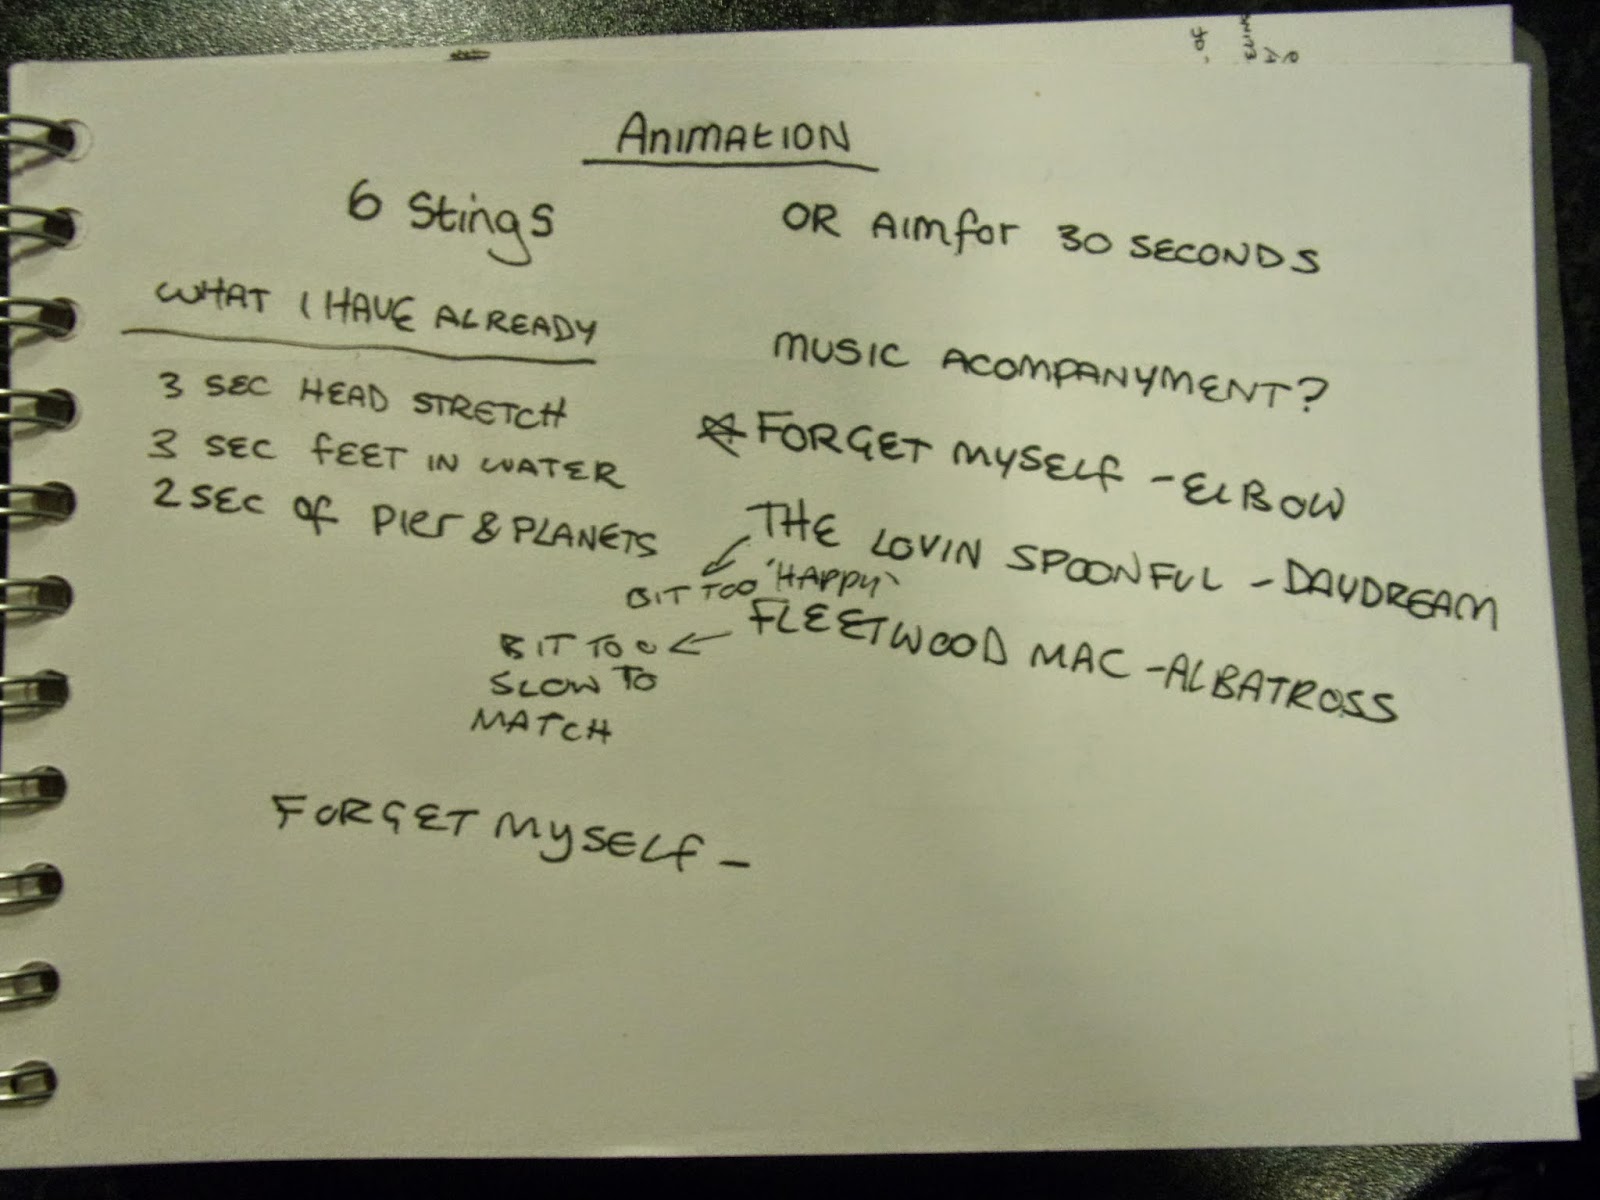 Animation
6 Stings
OR AIM for 30 SECONDS
WHAT I HAVE ALREADY
3 SEC HEAD STRETCH
3 SEC FEET IN WATER
2 SEC of PIER & PLANETS
MUSIC ACOMPANYMENT?
FORGET MYSELF - ELBOW
THE LOVIN SPOONFUL - DAYDREAM
BIT TOO 'HAPPY'
FLEETWOOD MAC - ALBATROSS
BIT TOO
SLOW TO
MATCH
FORGET MYSELF -